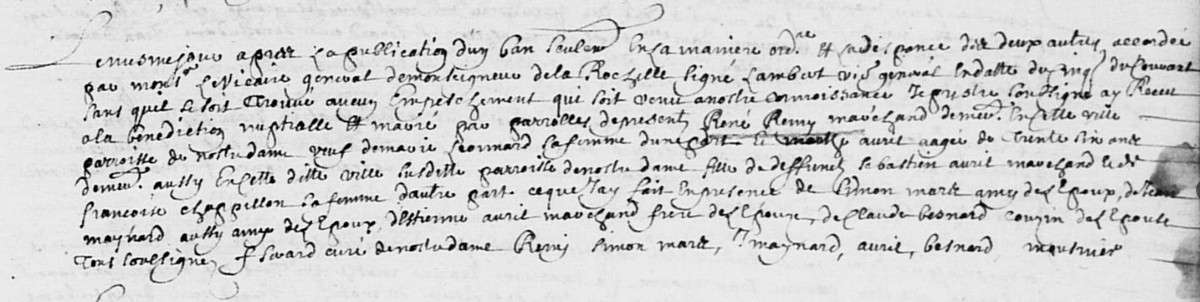 Le mesme jour apres la publication d'un ban seulemt En la maniere ordre Et la dispence des deux autres accordée
par monsr le vicaire general de monseigneur de la Rochelle signé Lambert vic general En datte du cinq du Courant
sans quil se soit trouvé aucun Empeschement qui soit venu a nostre connoissance Je prestre soussigné ay Receu
a la benediction nuptialle Et marié par parrolles de present René Remy marchand demeurt En cette ville
parroisse de nostre dame veuf de marie Leonnard sa femme d'une part Et marthe avril aagée de trente six ans
demeurt aussy En cette ditte ville susditte parroisse de nostre dame fille de deffunct sebastien avril marchand & de
francoise chappillon sa femme d'autre part ce que J'ay fait En presence de simon marts amy de l'Epoux, de Jean
maynard aussy amy de l'Epoux, d'Estienne avril marchand frere de l'Epouse, de Claude besnard cousin de l'Epouse
Tous soussignés, curé de nostre dame Remy simon marts, maynard, avril, besnard